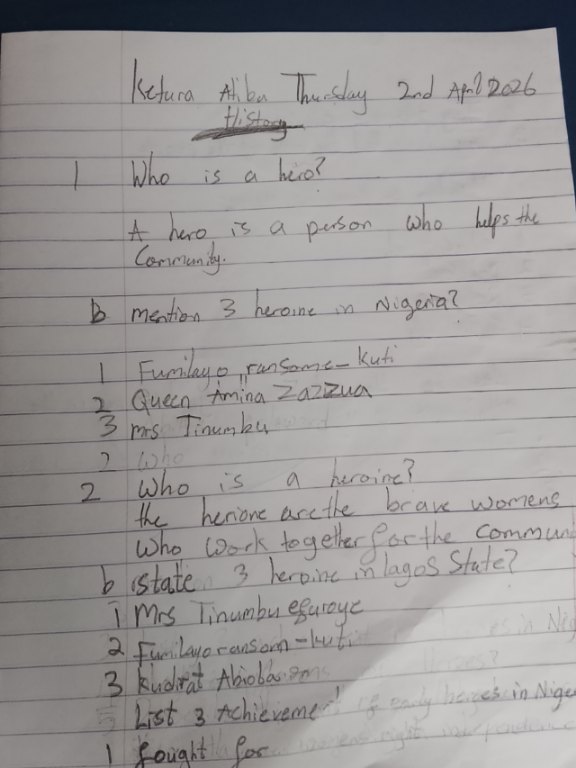 Ketura Aliba Thursday 2nd April 2026
History
1 Who is a hero?
A hero is a person who helps the
Community.
b mention 3 heroine in Nigeria?
1 Fumilayo ransome-kuti
2 Queen Amina Zazzua
3 mrs Tinumbu
2 Who
2 Who is a heroine?
the herione are the brave womens
who work together for the commun
b state 3 heroine in lagos State?
1 Mrs Tinumbu efuroye
2 Fumilayo ransom-kuti
3 kudirat Abiola
List 3 Achievement of early heroes in Nige
1 fought for womens right independence